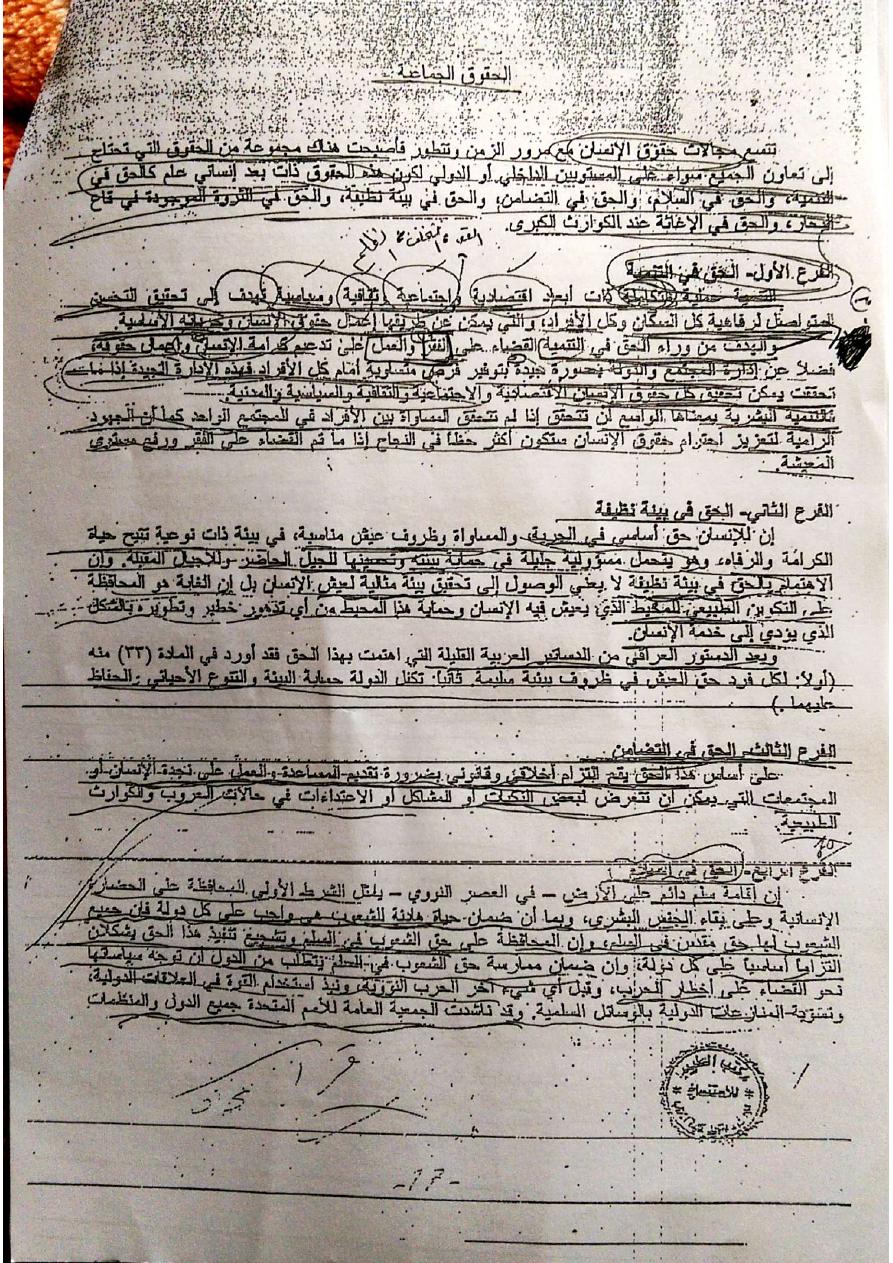 الحقوق الجماعية
تتسع مجالات حقوق الإنسان مع مرور الزمن وتتطور فأصبحت هناك مجموعة من الحقوق التي تحتاج
إلى تعاون الجميع سواء على المستويين الداخلي أو الدولي لكون هذه الحقوق ذات بعد إنساني عام كالحق في
التنمية، والحق في السلام، والحق في التضامن، والحق في بيئة نظيفة، والحق في الثروة الموجودة في قاع
البحار، والحق في الإغاثة عند الكوارث الكبرى.
الفرع الأول- الحق في التنمية
التنمية عملية متكاملة ذات أبعاد اقتصادية واجتماعية وثقافية وسياسية تهدف إلى تحقيق التحسن
المتواصل لرفاهية كل السكان وكل الأفراد، والتي يمكن عن طريقها إعمال حقوق الإنسان وحرياته الأساسية.
والهدف من وراء الحق في التنمية القضاء على الفقر والعمل على تدعيم كرامة الإنسان وإعمال حقوقه،
فضلاً عن إدارة المجتمع والدولة بصورة جيدة بتوفير فرص متساوية أمام كل الأفراد فهذه الإدارة الجيدة إذا ما
تحققت يمكن تحقيق كل حقوق الإنسان الاقتصادية والاجتماعية والثقافية والسياسية والمدنية.
فالتنمية البشرية بمعناها الواسع لن تتحقق إذا لم تتحقق المساواة بين الأفراد في المجتمع الواحد كما أن الجهود
الرامية لتعزيز احترام حقوق الإنسان ستكون أكثر حظاً في النجاح إذا ما تم القضاء على الفقر ورفع مستوى
المعيشة.
الفرع الثاني- الحق في بيئة نظيفة
إن للإنسان حق أساسي في الحرية، والمساواة وظروف عيش مناسبة، في بيئة ذات نوعية تتيح حياة
الكرامة والرفاه، وهو يتحمل مسؤولية جليلة في حماية بيئته وتحسينها للجيل الحاضر وللأجيال المقبلة. وإن
الاهتمام بالحق في بيئة نظيفة لا يعني الوصول إلى تحقيق بيئة مثالية لعيش الإنسان بل إن الغاية هو المحافظة
على التكوين الطبيعي للمحيط الذي يعيش فيه الإنسان وحماية هذا المحيط من أي تدهور خطير وتطويره بالشكل
الذي يؤدي إلى خدمة الإنسان.
ويعد الدستور العراقي من الدساتير العربية القليلة التي اهتمت بهذا الحق فقد أورد في المادة (٣٣) منه
(أولاً: لكل فرد حق العيش في ظروف بيئية سليمة. ثانياً: تكفل الدولة حماية البيئة والتنوع الأحيائي والحفاظ
عليهما.)
الفرع الثالث- الحق في التضامن
على أساس هذا الحق يقع التزام أخلاقي وقانوني بضرورة تقديم المساعدة والعمل على نجدة الإنسان أو
المجتمعات التي يمكن أن تتعرض لبعض النكبات أو المشاكل أو الاعتداءات في حالات الحروب والكوارث
الطبيعية.
الفرع الرابع- الحق في السلم
إن إقامة سلم دائم على الأرض – في العصر النووي – يمثل الشرط الأولي للمحافظة على الحضارة
الإنسانية وعلى بقاء الجنس البشري، وبما أن ضمان حياة هادئة للشعوب هي واجب على كل دولة فإن جميع
الشعوب لها حق مقدس في السلم، وإن المحافظة على حق الشعوب في السلم وتشجيع تنفيذ هذا الحق يشكلان
التزاماً أساسياً على كل دولة، وإن ضمان ممارسة حق الشعوب في السلم يتطلب من الدول أن توجه سياساتها
نحو القضاء على أخطار الحرب، وقبل أي شيء آخر الحرب النووية، ونبذ استخدام القوة في العلاقات الدولية،
وتسوية المنازعات الدولية بالوسائل السلمية. وقد ناشدت الجمعية العامة للأمم المتحدة جميع الدول والمنظمات
مكتب الطيب
للاستنساخ
-١٦-